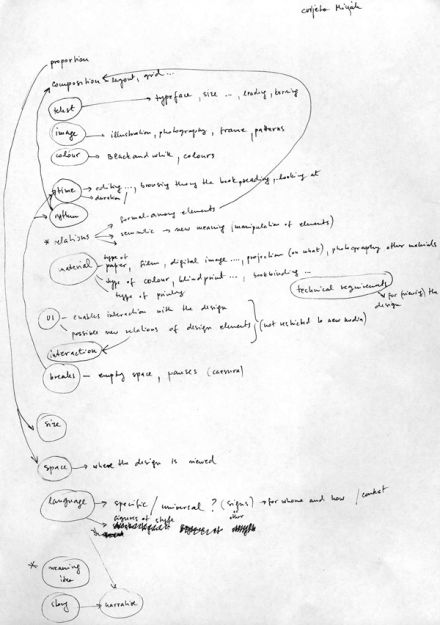 proportion
composition → layout, grid ...
tekst → typeface, size ..., leading, kerning
image → illustration, photography, frame, patterns
colour → Black and white, colours
time → editing ..., browsing the book, reading, looking at
duration /
rythm
* relations → formal among elements
→ semantic → new meaning (manipulation of elements)
material → type of paper, film, digital image ..., projection (on what), photography other materials
→ type of colour, blindprint ..., bookbinding ...
type of printing
technical requirements
→ for (viewing) the design
UI – enables interaction with the design
– possible new relations of design elements
(not restricted to new media)
interaction
breaks – empty space, pauses (caesura)
size
space → where the design is viewed
language → specific / universal ? (signs) → for whome and how / context
figures of style
other
* meaning
idea
story → narrative